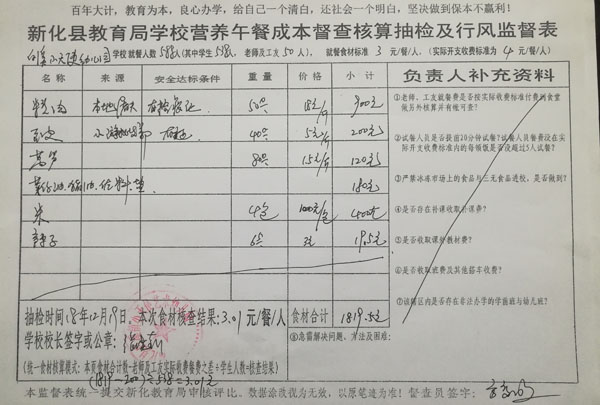 百年大计，教育为本，良心办学，给自己一个清白，还社会一个明白，坚决做到保本不赢利！
新化县教育局学校营养午餐成本督查核算抽检及行风监督表
学校就餐人数588人(其中学生538人，老师及工友50人)，就餐食材标准 3 元/餐/人，(实际开支收费标准为 4 元/餐/人)
名称 来源 安全达标条件 重量 价格 小计 负责人补充资料
本地 有检验证 50斤 18元/斤 900元
40斤 5元/斤 200元
80斤 1.5元/斤 120元
180元
米 4包 100元/包 400元
6斤 19.5元
①老师、工友就餐费是否按实际收费标准付费到食堂做另外核算并有账可查？
②试餐人员是否提前20分钟试餐？试餐人员餐费没在实际开支收费标准内的每顿饭是否没超过5人试餐？
③严禁冰冻市场上的食品与三无食品进校、是否做到？
④是否存在补课收取补课费？
⑤是否收取课外教材费？
⑥是否收取班费及其他搭车收费？
⑦该辖区内是否存在非法办学的学前班与幼儿班？
抽检时间18年12月19日 本次食材核查结果：3.01元/餐/人 食材合计 1819.5元
学校校长签字或公章：
⑧急需解决问题、方法及困难：
(统一食材核算模式：本页食材合计数-老师及工友实际收费餐费之差÷学生人数=核查结果)
(1819-200)÷538=3.01元
本监督表统一提交新化教育局审核评比。数据涂改视为无效，以原笔迹为准！督查员签字：